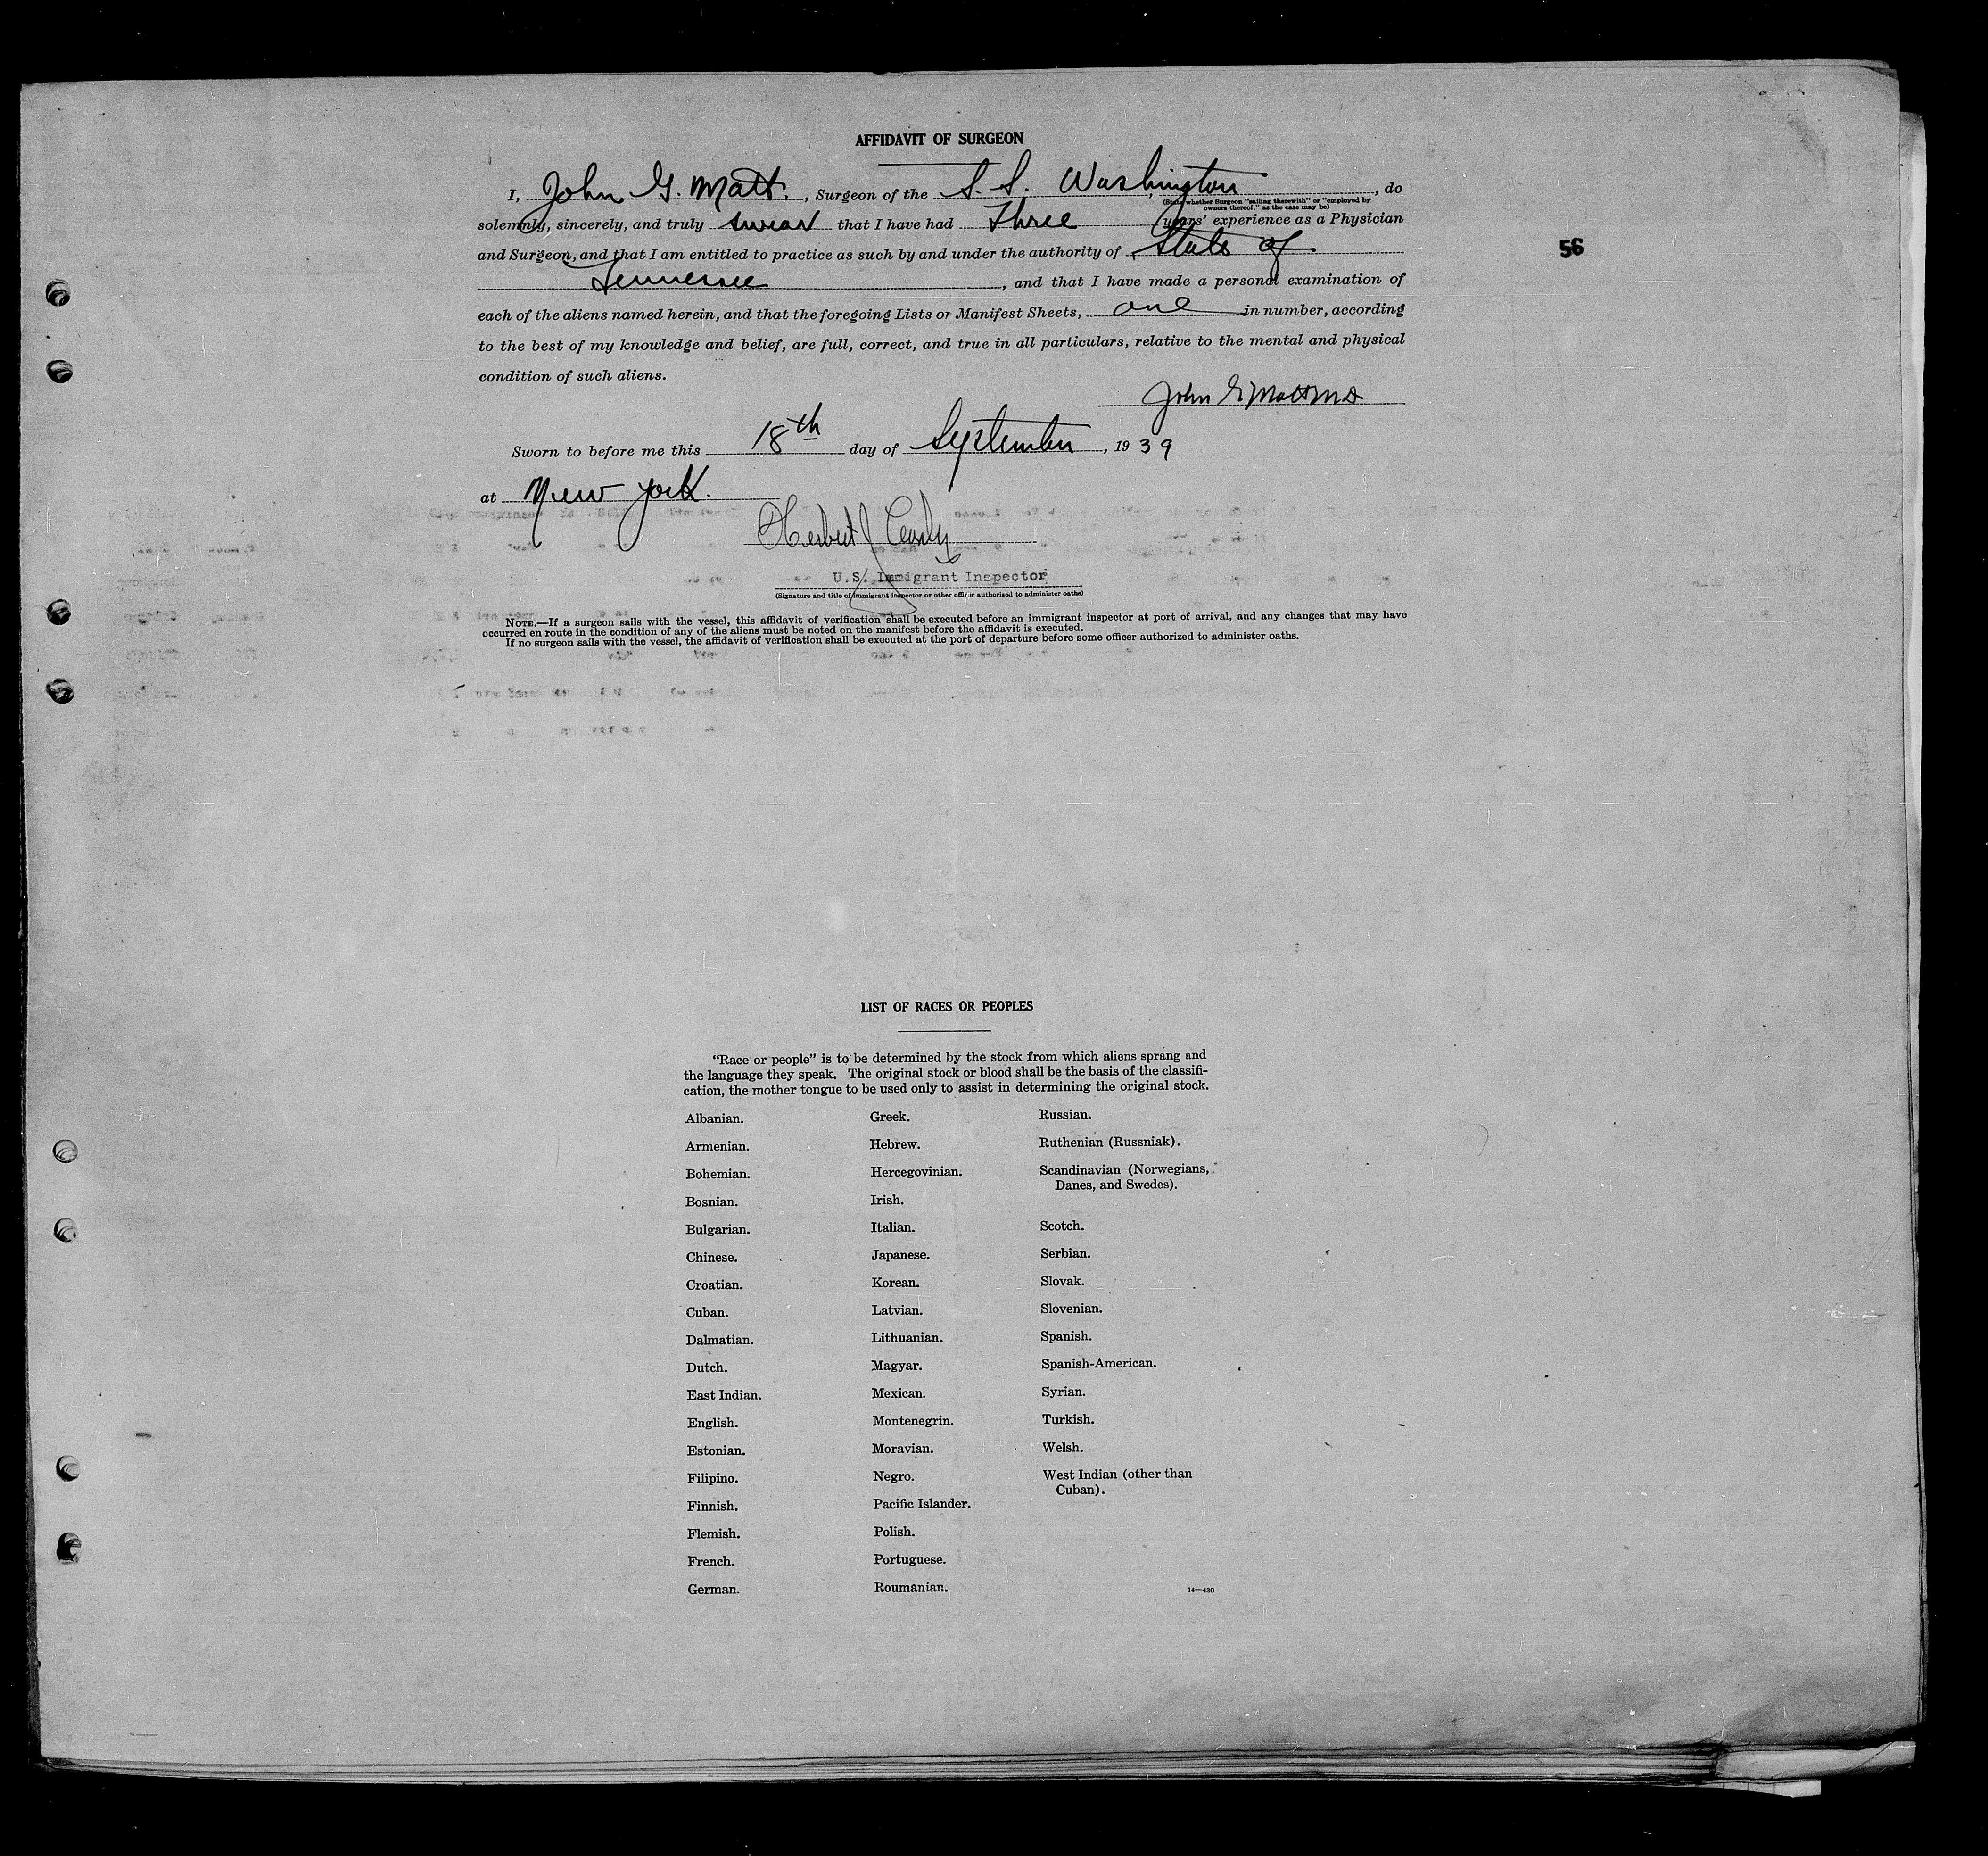 AFFIDAVIT OF SURGEON
I, John G. Matt. , Surgeon of the S. S. Washington , do
(State whether Surgeon "sailing therewith" or "employed by
owners thereof," as the case may be)
solemnly, sincerely, and truly swear that I have had Three years' experience as a Physician
and Surgeon, and that I am entitled to practice as such by and under the authority of State of
Tennessee , and that I have made a personal examination of
each of the aliens named herein, and that the foregoing Lists or Manifest Sheets, one in number, according
to the best of my knowledge and belief, are full, correct, and true in all particulars, relative to the mental and physical
condition of such aliens.
John G Matt MD
Sworn to before me this 18th day of September , 1939
at New York.
Herbert J
U.S. Immigrant Inspector
(Signature and title of immigrant inspector or other officer authorized to administer oaths)
NOTE.—If a surgeon sails with the vessel, this affidavit of verification shall be executed before an immigrant inspector at port of arrival, and any changes that may have
occurred en route in the condition of any of the aliens must be noted on the manifest before the affidavit is executed.
If no surgeon sails with the vessel, the affidavit of verification shall be executed at the port of departure before some officer authorized to administer oaths.
56
LIST OF RACES OR PEOPLES
"Race or people" is to be determined by the stock from which aliens sprang and
the language they speak. The original stock or blood shall be the basis of the classifi-
cation, the mother tongue to be used only to assist in determining the original stock.
Albanian.
Armenian.
Bohemian.
Bosnian.
Bulgarian.
Chinese.
Croatian.
Cuban.
Dalmatian.
Dutch.
East Indian.
English.
Estonian.
Filipino.
Finnish.
Flemish.
French.
German.
Greek.
Hebrew.
Hercegovinian.
Irish.
Italian.
Japanese.
Korean.
Latvian.
Lithuanian.
Magyar.
Mexican.
Montenegrin.
Moravian.
Negro.
Pacific Islander.
Polish.
Portuguese.
Roumanian.
Russian.
Ruthenian (Russniak).
Scandinavian (Norwegians,
Danes, and Swedes).
Scotch.
Serbian.
Slovak.
Slovenian.
Spanish.
Spanish-American.
Syrian.
Turkish.
Welsh.
West Indian (other than
Cuban).
14—430